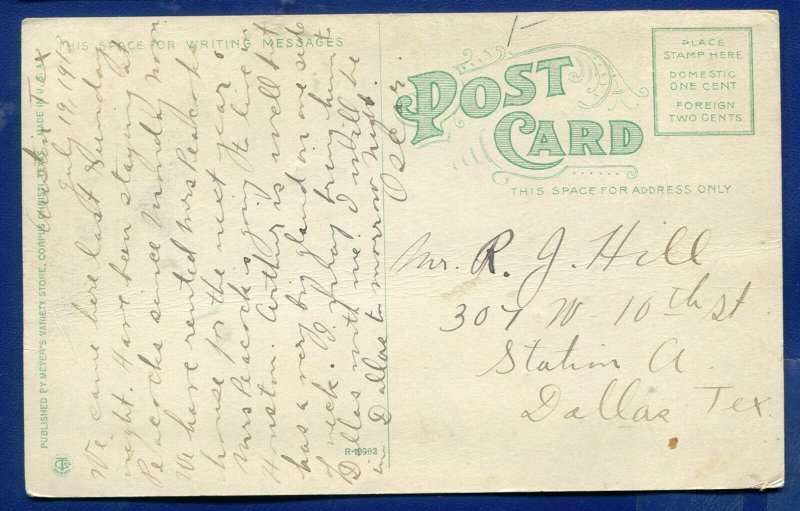 THIS SPACE FOR WRITING MESSAGES
Tex
July 19, 1913
We came here last Sunday
night. Have been staying at
Peacocks since Monday noon
We have rented Mrs Peacocks
house for the next year.
Mrs Peacock is going to live in
Houston. Arthur is well but
has a very big gland on one side
neck. I may bring him to
Dallas with me. I will be
in Dallas to morrow night.
Oscar.
PUBLISHED BY MEYER'S VARIETY STORE, CORPUS CHRISTI, TEXAS. MADE IN U.S.A.
R-18982
POST
CARD
THIS SPACE FOR ADDRESS ONLY
PLACE
STAMP HERE
DOMESTIC
ONE CENT
FOREIGN
TWO CENTS
Mr. R. J. Hill
307 W- 10th St
Station A.
Dallas Tex.